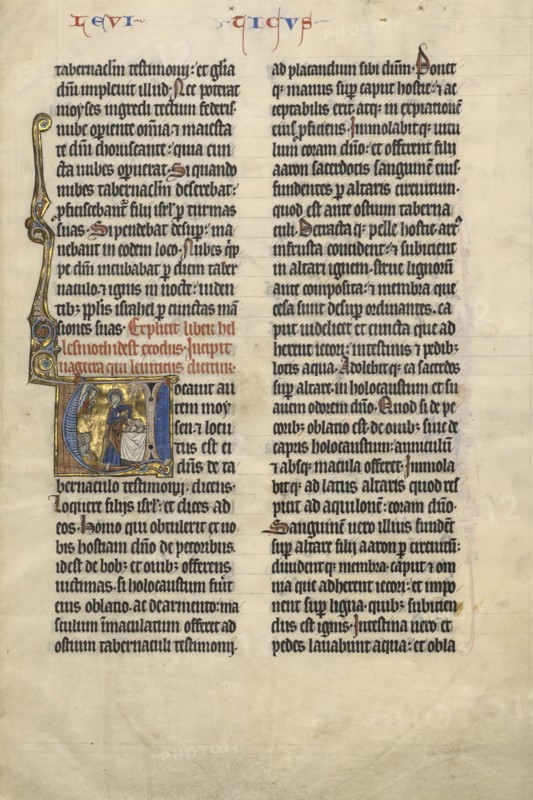 LEVI TICUS
tabernaclm testimonij: et glia
dni impleuit illud. Nec poterat
moyses ingredi tectum federis.
nube operiente omnia et maiesta
te dni choruscante: quia cun
cta nubes operuerat. Si quando
nubes tabernaclm deserebat:
pficiscebant filij isrl p turmas
suas. Si pendebat desup: ma
nebant in eodem loco. Nubes qp
pe dni incubabat p diem taber
naculo: et ignis in nocte: uiden
tibz pplis israhel p cunctas man
siones suas. Explicit liber hel
lesmoth idest exodus. Incipit
uagecra qui leuiticus dicitur.
Uocauit au
tem moy
sen et locu
tus est ei
dns de ta
bernaculo testimonij. dicens.
Loquere filijs isrl. et dices ad
eos. Homo qui obtulerit ex uo
bis hostiam dno de pecoribus.
idest de bobz et ouibz offerens
uictimas. si holocaustum fuit
eius oblatio. ac de armento: ma
sculum immaculatum offeret ad
ostium tabernaculi testimonij.
ad placandum sibi dnm. Ponet
qz manus sup caput hostie: et ac
ceptabilis erit atqz in expiatione
eius pficiens. Immolabitqz uitu
lum coram dno: et offerent filij
aaron sacerdotis sanguinem eius.
fundentes p altaris circuitum.
quod est ante ostium taberna
culi. Detractaqz pelle hostie: art
in frusta concident: et subicient
in altari ignem. strue lignorum
ante composita: et membra que
cesa sunt desup ordinantes. ca
put uidelicet et cuncta que ad
herent iecori: intestinis et pedibz
lotis aqua. Adolebitqz ea sacerdos
sup altare in holocaustum et su
auem odorem dno. Quod si de pe
coribz oblatio est. de ouibz siue de
capris holocaustum: anniculum
et absqz macula offeret. Immola
bitqz ad latus altaris quod res
picit ad aquilonem: coram dno.
Sanguinem uero illius fundent
sup altare filij aaron p circuitum:
diuidentqz membra. caput et om
nia que adherent iecori: et impo
nent sup ligna. quibz subicien
dus est ignis. Intestina uero et
pedes lauabunt aqua: et obla